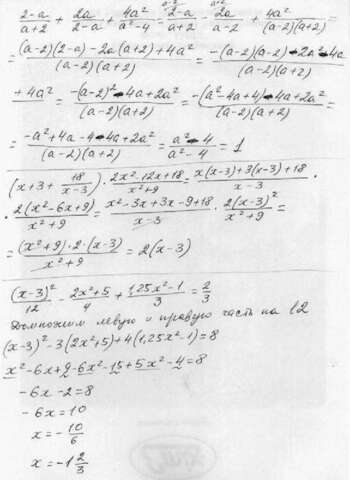 (2-a)/(a+2) + 2a/(2-a) + 4a²/(a²-4) = (2-a)/(a+2) - 2a/(a-2) + 4a²/((a-2)(a+2)) =
= ((a-2)(2-a) - 2a(a+2) + 4a²)/((a-2)(a+2)) = (-(a-2)(a-2) - 2a² - 4a
+ 4a²)/((a-2)(a+2)) = (-(a-2)² - 4a + 2a²)/((a-2)(a+2)) = (-(a²-4a+4) - 4a + 2a²)/((a-2)(a+2)) =
= (-a² + 4a - 4 - 4a + 2a²)/((a-2)(a+2)) = (a²-4)/(a²-4) = 1
(x + 3 + 18/(x-3)) · (2x² - 12x + 18)/(x²+9) = (x(x-3) + 3(x-3) + 18)/(x-3) ·
· 2(x²-6x+9)/(x²+9) = (x²-3x+3x-9+18)/(x-3) · 2(x-3)²/(x²+9) =
= (x²+9)·2·(x-3)/(x²+9) = 2(x-3)
(x-3)²/12 - (2x²+5)/4 + (1,25x²-1)/3 = 2/3
Домножим левую и правую часть на 12
(x-3)² - 3(2x²+5) + 4(1,25x²-1) = 8
x² - 6x + 9 - 6x² - 15 + 5x² - 4 = 8
-6x - 2 = 8
-6x = 10
x = -10/6
x = -1 2/3